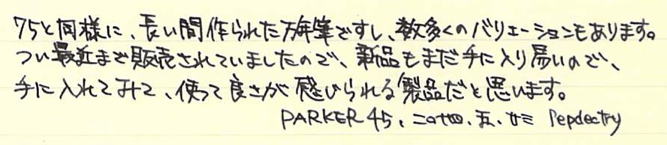 75と同様に、長い間作られた万年筆ですし、数多くのバリエーションもあります。
つい最近まで販売されていましたので、新品もまだ手に入り易いので、
手に入れてみて、使って良さが感じられる製品だと思います。
PARKER 45、